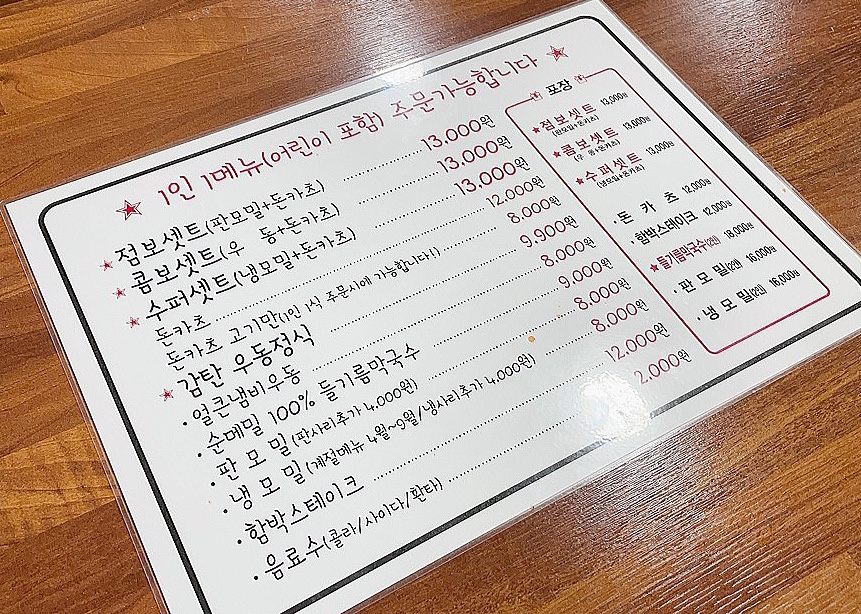 ★ 1인 1메뉴(어린이 포함) 주문가능합니다 ★
★ 점보셋트(판모밀+돈카츠) 13,000원
★ 콤보셋트(우 동+돈카츠) 13,000원
★ 수퍼셋트(냉모밀+돈카츠) 13,000원
돈카츠 12,000원
돈카츠 고기만(1인 1식 주문시에 가능합니다!) 8,000원
★ 감탄 우동정식 9,900원
· 얼큰냄비우동 8,000원
순메밀 100% 들기름막국수 9,000원
· 판 모 밀(판사리추가 4,000원) 8,000원
· 냉 모 밀(계절메뉴 4월~9월/냉사리추가 4,000원) 8,000원
· 함박스테이크 12,000원
· 음료수(콜라/사이다/환타) 2,000원
포장
★ 점보셋트 13,000원
(판모밀+돈카츠)
★ 콤보셋트 13,000원
(우 동+돈카츠)
★ 수퍼셋트 13,000원
(냉모밀+돈카츠)
· 돈 카 츠 12,000원
· 함박스테이크 12,000원
★ 들기름막국수(2인) 18,000원
판 모 밀(2인) 16,000원
· 냉 모 밀(2인) 16,000원